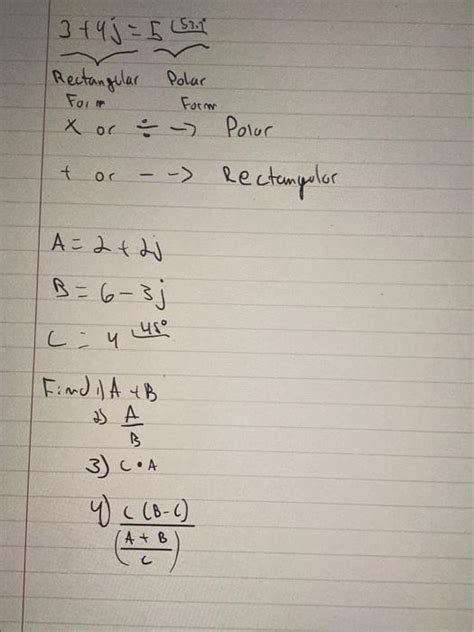 3 + 4j = 5 ∠53.1°
Rectangular Form Polar Form
x or ÷ -> Polar
+ or - -> Rectangular
A = 2 + 2j
B = 6 - 3j
C = 4 ∠45°
Find 1) A + B
2) A/B
3) C • A
4) C (B-C) / ((A + B)/C)